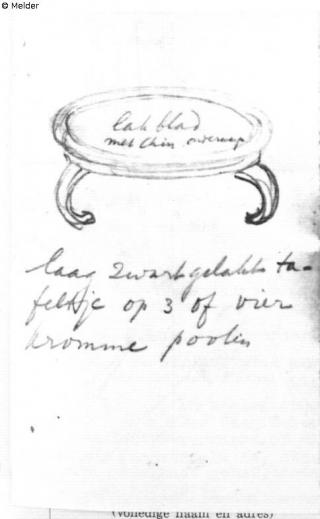 © Melder
lak blad
met Chin. onderwerp
laag zwart gelakt ta-
feltje op 3 of vier
kromme pooten
(volledige naam en adres)